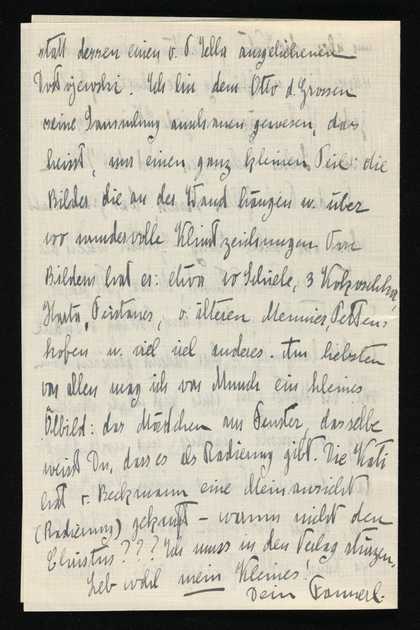 statt dessen einen v. T. Jella ausgeliehenen
Dostojewski. Ich bin dem Otto d. Grossen
seine Sammlung anschauen gewesen, das
heisst, nur einen ganz kleinen Teil: die
Bilder die an der Wand hängen u. über
100 wundervolle Klimtzeichnungen. Von
Bildern hat er: etwa 10 Schiele, 3 Kokoschka,
Harta, Feistauer, v. älteren Pettenkofen
u. viel viel anderes. Am liebsten
von allen mag ich von Munch ein kleines
Ölbild: das Mädchen am Fenster, dasselbe
weisst Du, dass es als Radierung gibt. Die Kati
hat v. Beckmann eine Mainansicht
(Radierung) gekauft – warum nicht den
Christus??? Ich muss in den Verlag stürzen,
Leb wohl mein Kleines!
Dein